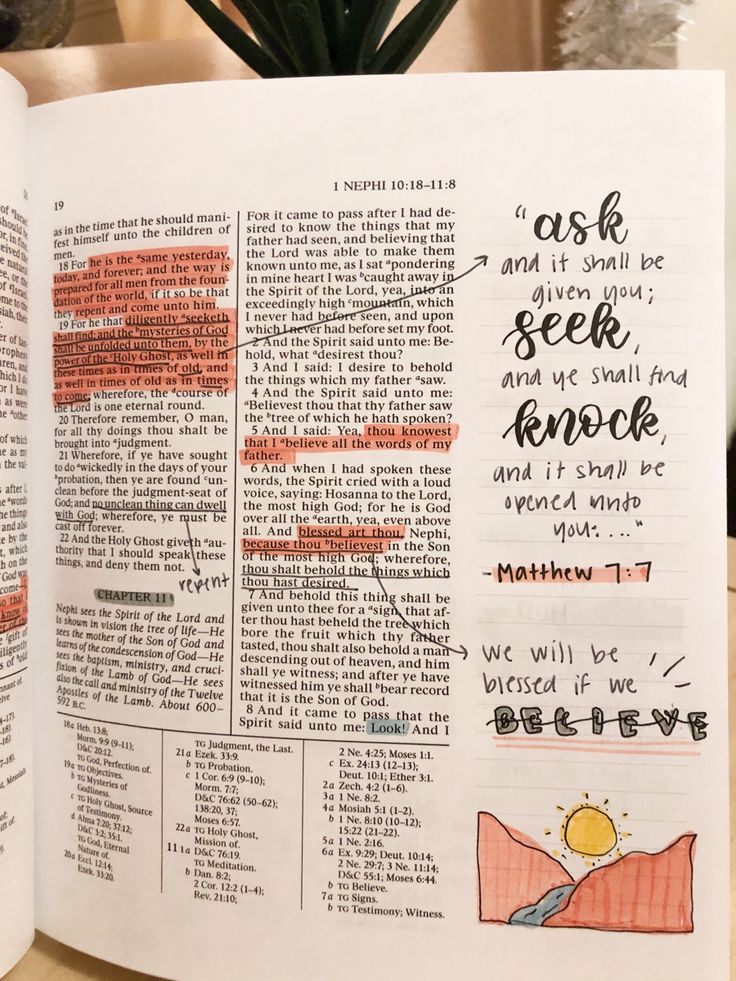 19
1 NEPHI 10:18–11:8
as in the time that he should mani-
fest himself unto the children of
men.
18 For he is the ᵃsame yesterday,
today, and forever; and the way is
prepared for all men from the foun-
dation of the world, if it so be that
they repent and come unto him.
19 For he that diligently ᵃseeketh
shall find; and the ᵇmysteries of God
shall be unfolded unto them, by the
power of the ᶜHoly Ghost, as well in
these times as in times of old, and
as well in times of old as in times
to come; wherefore, the ᵈcourse of
the Lord is one eternal round.
20 Therefore remember, O man,
for all thy doings thou shalt be
brought into ᵃjudgment.
21 Wherefore, if ye have sought
to do ᵃwickedly in the days of your
ᵇprobation, then ye are found ᶜun-
clean before the judgment-seat of
God; and no unclean thing can dwell
with God; wherefore, ye must be
cast off forever.
22 And the Holy Ghost giveth ᵃau-
thority that I should speak these
things, and deny them not.
repent
CHAPTER 11
Nephi sees the Spirit of the Lord and
is shown in vision the tree of life—He
sees the mother of the Son of God and
learns of the condescension of God—He
sees the baptism, ministry, and cruci-
fixion of the Lamb of God—He sees
also the call and ministry of the Twelve
Apostles of the Lamb. About 600–
592 B.C.
FOR it came to pass after I had de-
sired to know the things that my
father had seen, and believing that
the Lord was able to make them
known unto me, as I sat ᵃpondering
in mine heart I was ᵇcaught away in
the Spirit of the Lord, yea, into an
exceedingly high ᶜmountain, which
I never had before seen, and upon
which I never had before set my foot.
2 And the Spirit said unto me: Be-
hold, what ᵃdesirest thou?
3 And I said: I desire to behold
the things which my father ᵃsaw.
4 And the Spirit said unto me:
ᵃBelievest thou that thy father saw
the ᵇtree of which he hath spoken?
5 And I said: Yea, thou knowest
that I ᵃbelieve all the words of my
father.
6 And when I had spoken these
words, the Spirit cried with a loud
voice, saying: Hosanna to the Lord,
the most high God; for he is God
over all the ᵃearth, yea, even above
all. And blessed art thou, Nephi,
because thou ᵇbelievest in the Son
of the most high God; wherefore,
thou shalt behold the things which
thou hast desired.
7 And behold this thing shall be
given unto thee for a ᵃsign, that af-
ter thou hast beheld the tree which
bore the fruit which thy father
tasted, thou shalt also behold a man
descending out of heaven, and him
shall ye witness; and after ye have
witnessed him ye shall ᵇbear record
that it is the Son of God.
8 And it came to pass that the
Spirit said unto me: Look! And I
18a Heb. 13:8;
Morm. 9:9 (9–11);
D&C 20:12.
TG God, Perfection of.
19a TG Objectives.
b TG Mysteries of
Godliness.
c TG Holy Ghost, Source
of Testimony.
d Alma 7:20; 37:12;
D&C 3:2; 35:1.
TG God, Eternal
Nature of.
20a Eccl. 12:14;
Ezek. 33:20.
TG Judgment, the Last.
21a Ezek. 33:9.
b TG Probation.
c 1 Cor. 6:9 (9–10);
Morm. 7:7;
D&C 76:62 (50–62);
138:20, 37;
Moses 6:57.
22a TG Holy Ghost,
Mission of.
11 1a D&C 76:19.
TG Meditation.
b Dan. 8:2;
2 Cor. 12:2 (1–4);
Rev. 21:10;
2 Ne. 4:25; Moses 1:1.
c Ex. 24:13 (12–13);
Deut. 10:1; Ether 3:1.
2a Zech. 4:2 (1–6).
3a 1 Ne. 8:2.
4a Mosiah 5:1 (1–2).
b 1 Ne. 8:10 (10–12);
15:22 (21–22).
5a 1 Ne. 2:16.
6a Ex. 9:29; Deut. 10:14;
2 Ne. 29:7; 3 Ne. 11:14;
D&C 55:1; Moses 6:44.
b TG Believe.
7a TG Signs.
b TG Testimony; Witness.
"ask
and it shall be
given you;
seek,
and ye shall find
knock,
and it shall be
opened unto
you:..."
- Matthew 7:7
we will be
blessed if we
BELIEVE